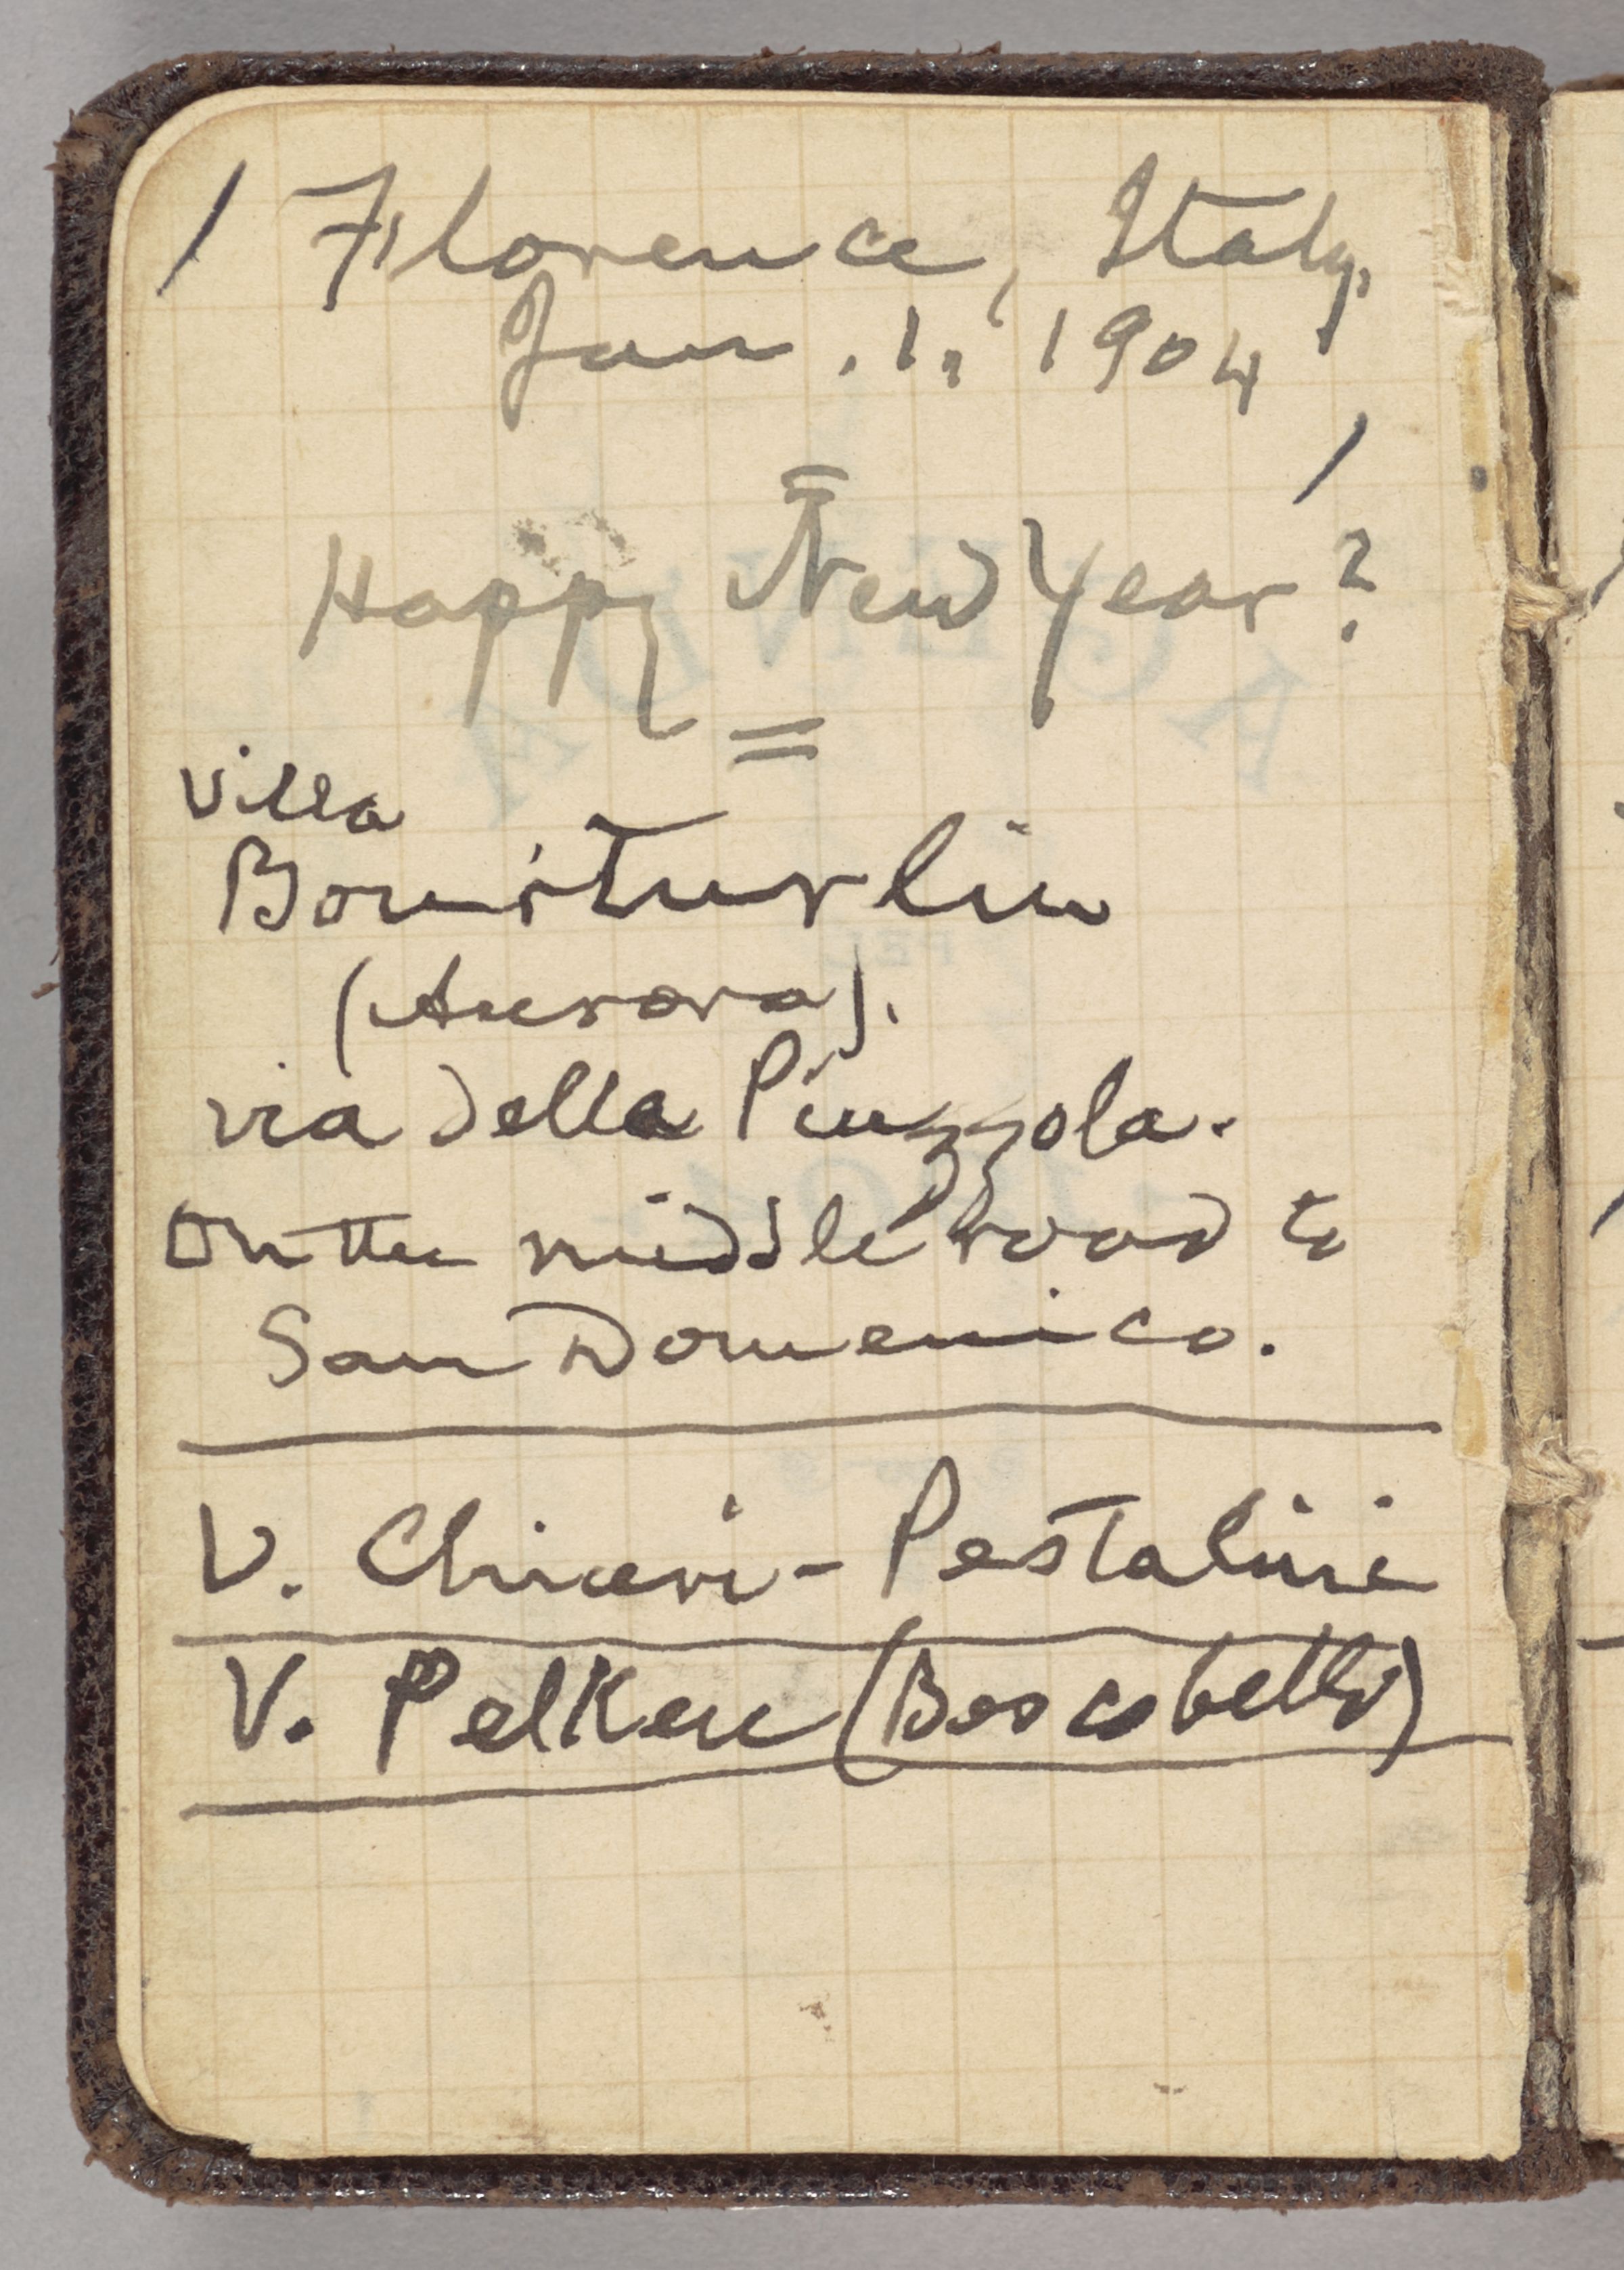 / Florence, Italy,
Jan. 1., 1904 /
Happy New Year?
Villa
Bourturlin
(Aurora).
via della Piazzola.
On the middle road to
San Domenico.
V. Chiari-Pestalini
V. Pelken (Boscobello)